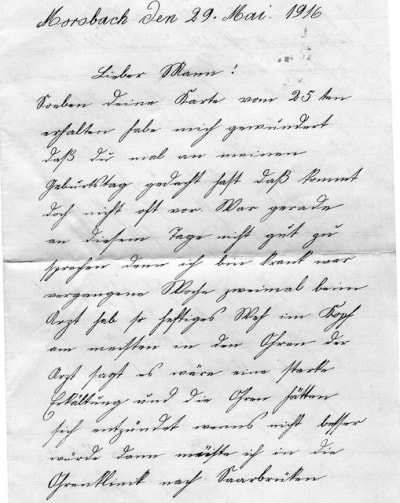 Morsbach den 29. Mai. 1916
Lieber Mann!
Soeben deine Karte vom 25ten
erhalten habe mich gewundert
daß du mal an meinen
Geburtstag gedacht hast daß kommt
doch nicht oft vor. War gerade
an diesem Tage nicht gut zu
sprechen denn ich bin krank war
vergangene Woche zweimal beim
Arzt hab so heftiges Weh im Kopf
am meisten in den Ohren der
Arzt sagt es wäre eine starke
Erkältung und die Ohren hätten
sich entzündet wenns nicht besser
würde dann müßte ich in die
Ohrenklinik nach Saarbrüken